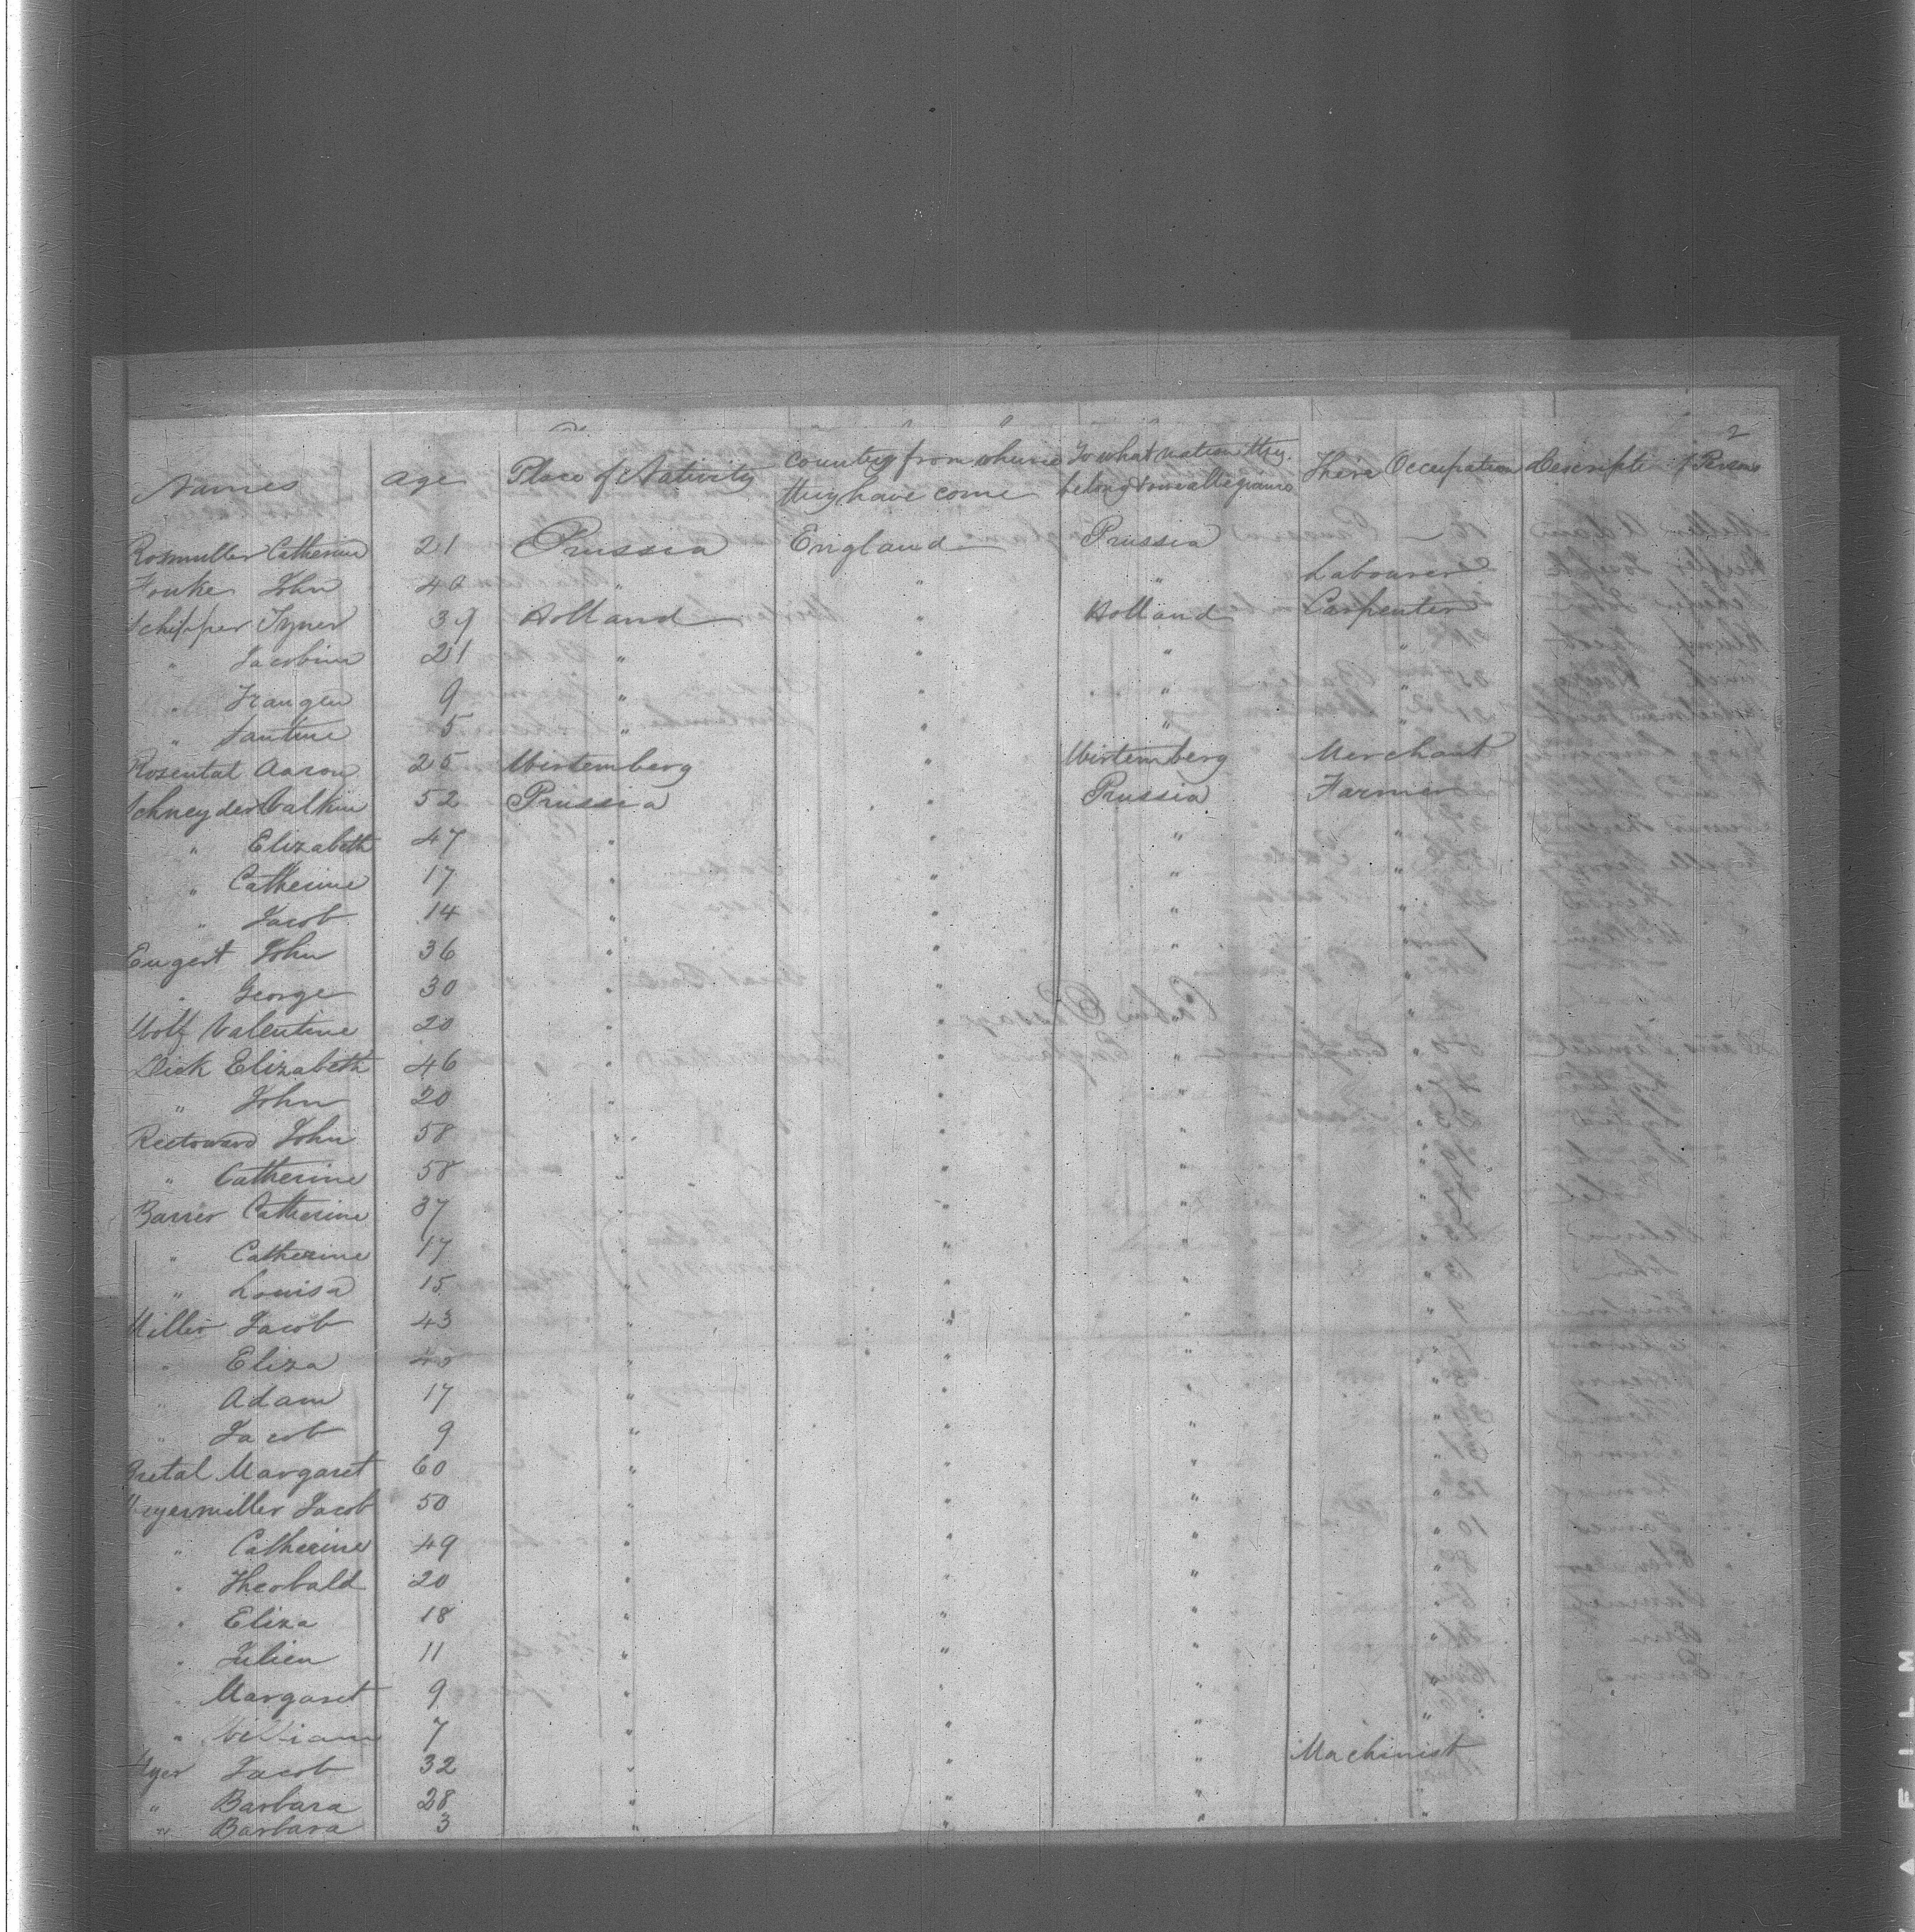 2
Names Age Place of Nativity Country from whence they have come To what nation they belong & owe allegiance There Occupation Descripte of Persons
Rosmuller Catherine 21 Prussia England Prussia
Fouke John 40 " " " Labourer
Schipper Tyner 39 Holland " Holland Carpenter
" Jacobina 21 " " " "
" Trangen 9 " " " "
" Santine 5 " " " "
Rosental Aaron 25 Wirtemberg " Wirtemberg Merchant
Schneyder Valkin 52 Prussia " Prussia Farmer
" Elizabeth 47 " " " "
" Catherine 17 " " " "
" Jacob 14 " " " "
Eugert John 36 " " " "
" George 30 " " " "
Wolf Valentine 20 " " " "
Dick Elizabeth 46 " " " "
" John 20 " " " "
John 58 " " " "
" Catherine 58 " " " "
Barrer Catherine 37 " " " "
" Catherine 17 " " " "
" Louisa 15 " " " "
Miller Jacob 43 " " " "
" Eliza " " " "
" Adam 17 " " " "
" Jacob 9 " " " "
Margaret 60 " " " "
Jacob 50 " " " "
" Catherine 49 " " " "
" Theobald 20 " " " "
" Eliza 18 " " " "
" Julien 11 " " " "
" Margaret 9 " " " "
" William 7 " " " "
Myer Jacob 32 " " " Machinist
" Barbara 28 " " " "
" Barbara 3 " " " "
FILM